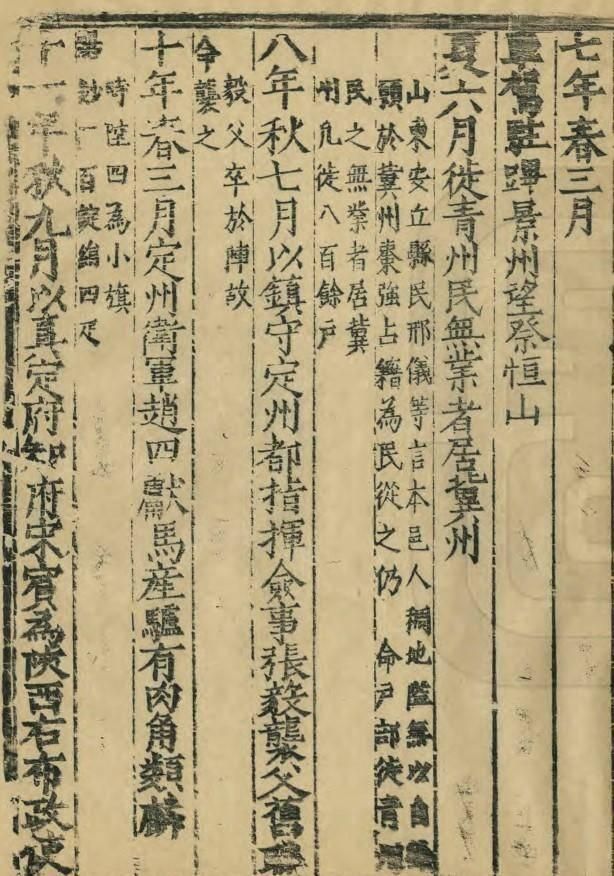 七年春三月
車駕駐蹕景州望祭恒山
夏六月徙青州民無業者居冀州
山東安丘縣民邢儀等言本邑人稠地隘無以自
頭於冀州棗強占籍為民從之仍 命戶部徙青
民之無業者居冀
州凡徙八百餘戶
八年秋七月以鎮守定州都指揮僉事張毅襲父舊職
毅父卒於陣故
令襲之
十年春三月定州衛軍趙四獻馬産驢有肉角類麟
時陞四為小旗
鈔一百錠絹四疋
十一年秋九月以真定府知府宋賓為陝西右布政使